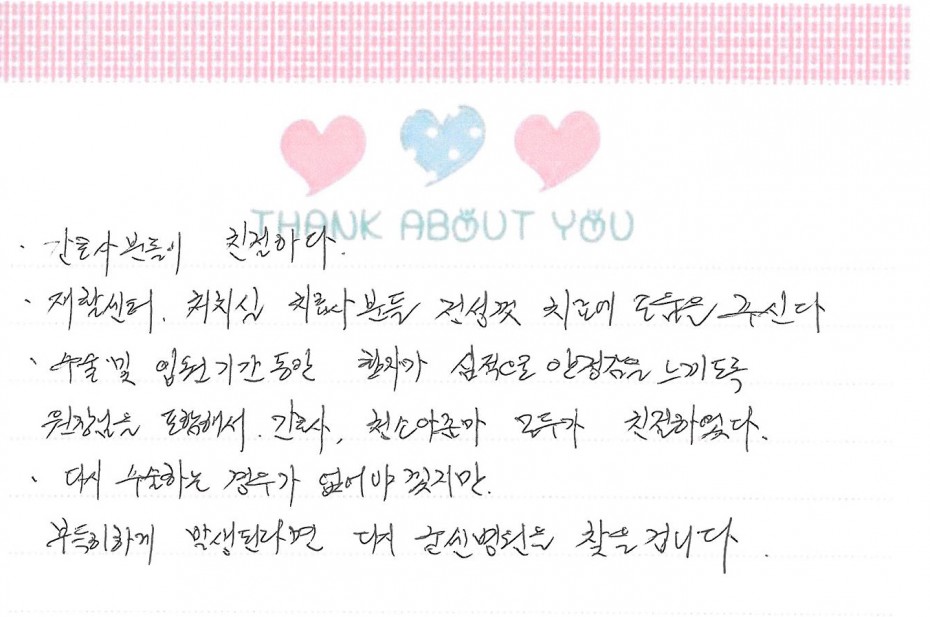 THANK ABOUT YOU
· 간호사분들이 친절하다.
· 재활센터, 처치실 치료사분들 정성껏 치료에 도움을 주신다
· 수술 및 입원기간 동안 환자가 심적으로 안정감을 느끼도록
원장님을 포함해서 간호사, 청소아줌마 모두가 친절하였다.
· 다시 수술하는 경우가 없어야 겠지만.
부득이하게 발생된다면 다시 병원을 찾을 겁니다.